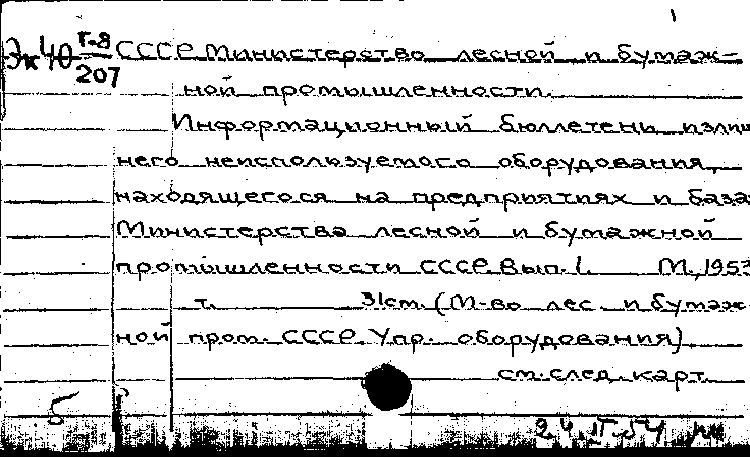 1
Эк40 т-я/207 СССР. Министерство лесной и бумаж-
ной промышленности.
Информационный бюллетень излиш
него неиспользуемого оборудования,
находящегося на предприятиях и база
Министерства лесной и бумажной
промышленности СССР. Вып. 1. М., 1953
т. 31см. (М-во лес. и бумаж-
ной пром. СССР. Упр. оборудования)
см. след. карт.
Б
24.IV.54